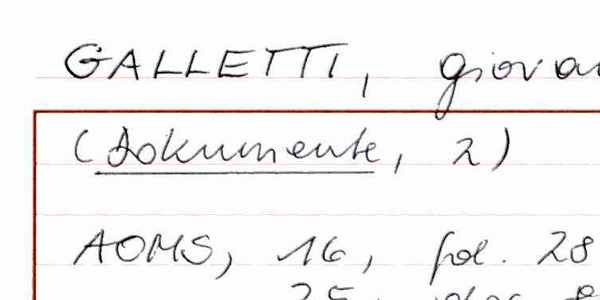 GALLETTI, giova
(Dokumente, 2)
AOMS, 16, fol. 28
25,